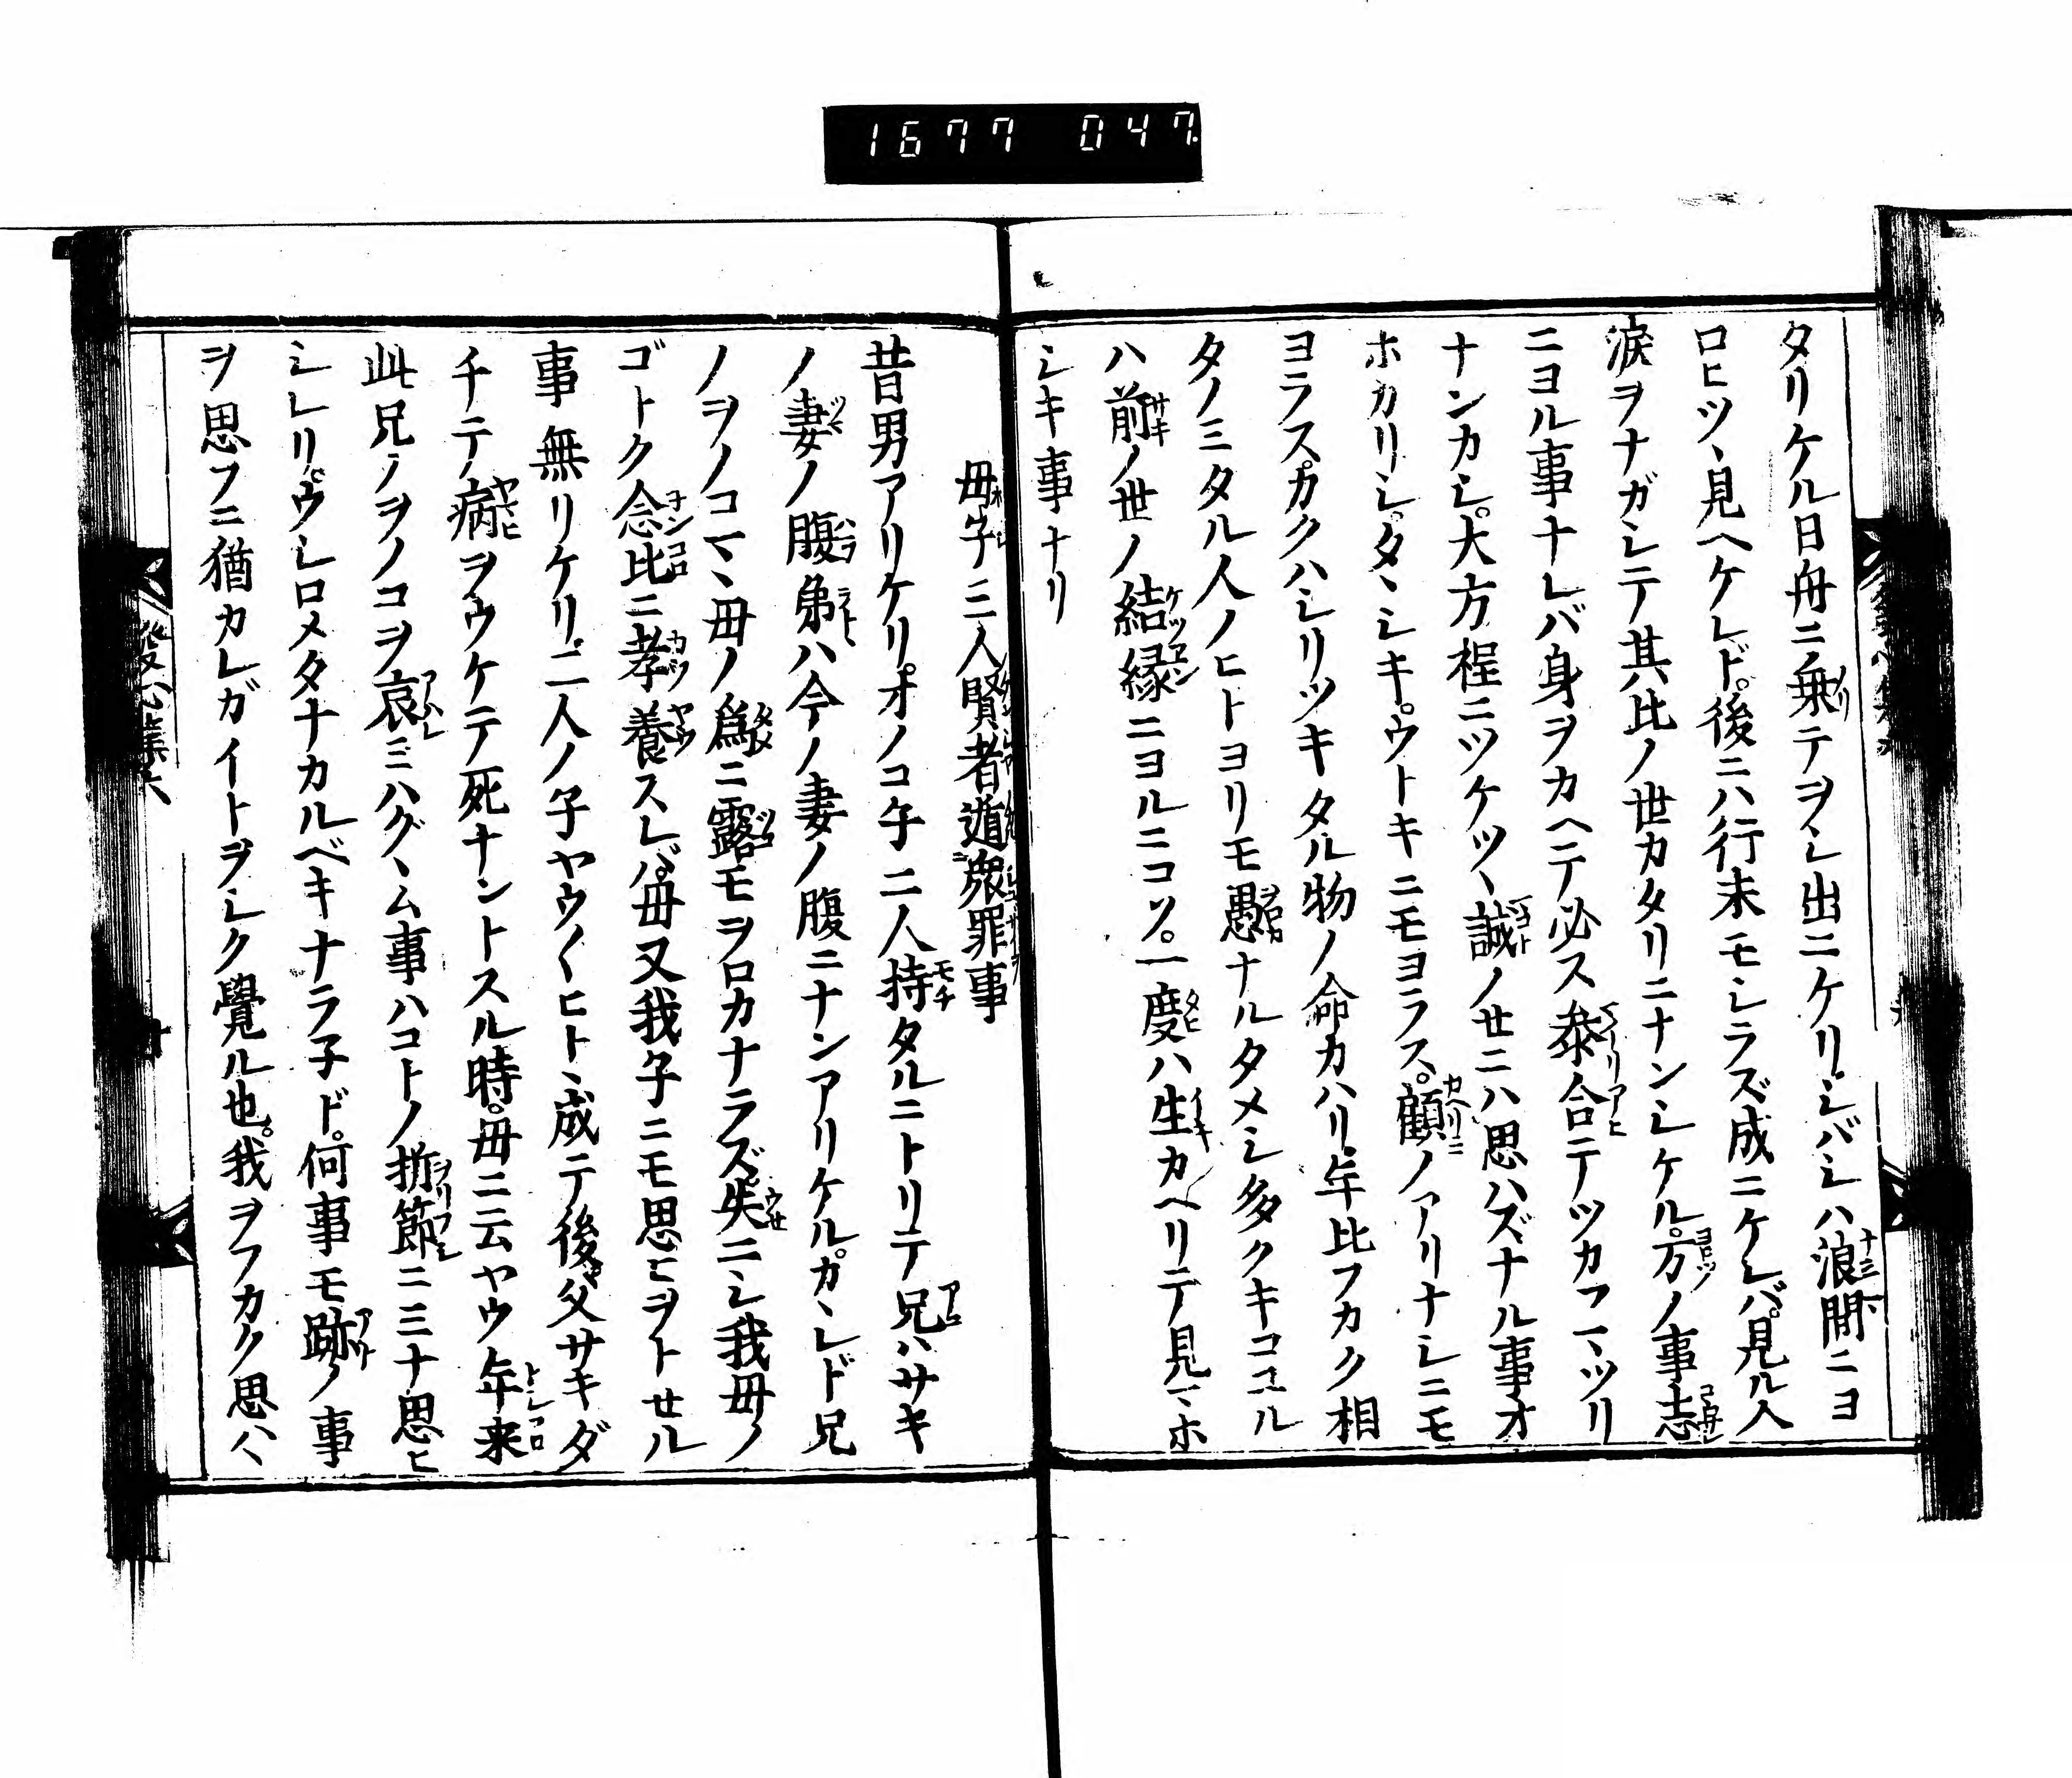 1677 047
タリケル日舟ニ乗テヲシ出ニケリ。シバシハ浪間ニヨ
ロヒツヽ見ヘケレド。後ニハ行末モシラズ成ニケレバ。見ル人
涙ヲナガシテ其比ノ世カタリニナンシケル。万ノ事志
ニヨル事ナレバ身ヲカヘテ必ス参合テツカフマツリ
ナンカシ。大方桯ニツケツヽ誠ノセニハ思ハズナル事オ
ホカリシ。タヽシキ。ウトキニモヨラス。顧ノアリナシニモ
ヨラス。カクハシリツキタル物ノ命カハリ。年比フカク相
タノミタル人ノヒトヨリモ愚ナルタメシ多クキコユル
ハ前ノ世ノ結縁ニヨルニコソ。一度ハ生カヘリテ見マホ
シキ事ナリ
母子三人賢者遁衆罪事
昔男アリケリ。オノコ子二人持タルニトリテ兄ハサキ
ノ妻ノ腹弟ハ今ノ妻ノ腹ニナンアリケル。カヽレド兄
ノヲノコマヽ母ノ為ニ露モヲロカナラズ失ニシ我母ノ
ゴトク念比ニ孝養スレバ。母又我子ニモ思ヒヲトセル
事無リケリ。二人ノ子ヤウ〱ヒトヽ成テ後父サキダ
チテ病ヲウケテ死ナントスル時。母ニ云ヤウ年来
此兄ノヲノコヲ哀ミハグヽム事ハコトノ折節ニミナ思ヒ
シレリ。ウシロメタナカルベキナラ子ド。何事モ跡ノ事
ヲ思フニ猶カレガイトヲシク覺ル也。我ヲフカク思ハヽ
發心集六